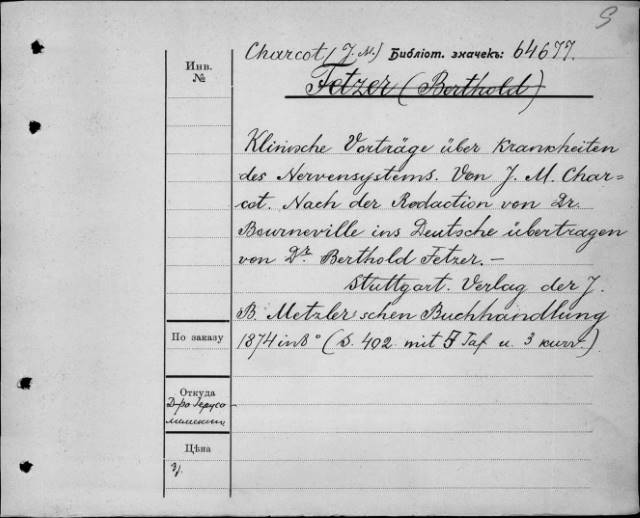 Charcot (J. M.) Библіот. значекъ: 64677.
Инв.
№
Fetzer (Berthold)
Klinische Vorträge über Krankheiten
des Nervensystems. Von J. M. Char-
cot. Nach der Redaction von Dr.
Bourneville ins Deutsche übertragen
von Dr. Berthold Fetzer. —
Stuttgart. Verlag der J.
B. Metzler'schen Buchhandlung
По заказу
1874 in 8° (S. 402 mit 7 Taf u. 3 )
Откуда
Д-ра
Цѣна